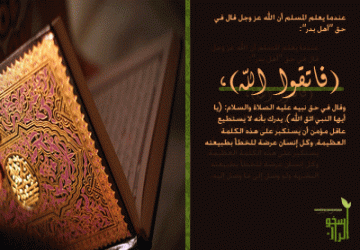 عندما يعلم المسلم أن الله عز وجل قال في
حق "أهل بدر":
(فاتقوا الله)،
وقال في حق نبيه عليه الصلاة والسلام: (يا
أيها النبي اتق الله)، يدرك بأنه لا يستطيع
عاقل مؤمن أن يستكبر على هذه الكلمة
العظيمة، وكل إنسان عرضة للخطأ بطبيعته